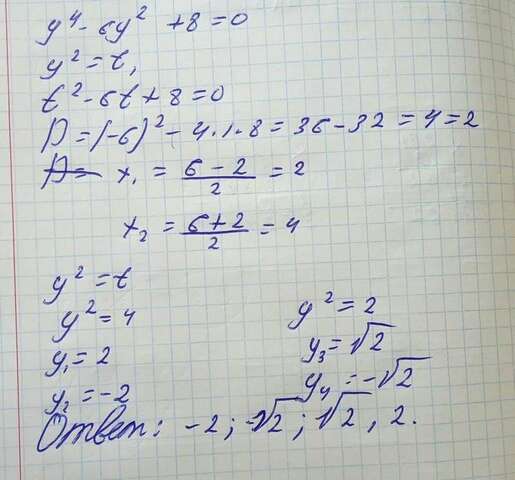 y⁴ - 6y² + 8 = 0
y² = t,
t² - 6t + 8 = 0
D = (-6)² - 4·1·8 = 36 - 32 = 4 = 2
x₁ = (6 - 2)/2 = 2
x₂ = (6 + 2)/2 = 4
y² = t
y² = 4
y₁ = 2
y₂ = -2
y² = 2
y₃ = √2
y₄ = -√2
Ответ: -2; -√2; √2, 2.